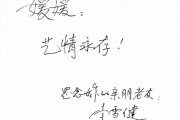 媛媛：
艺情永存！
思念你的亲朋老友：
李雪健